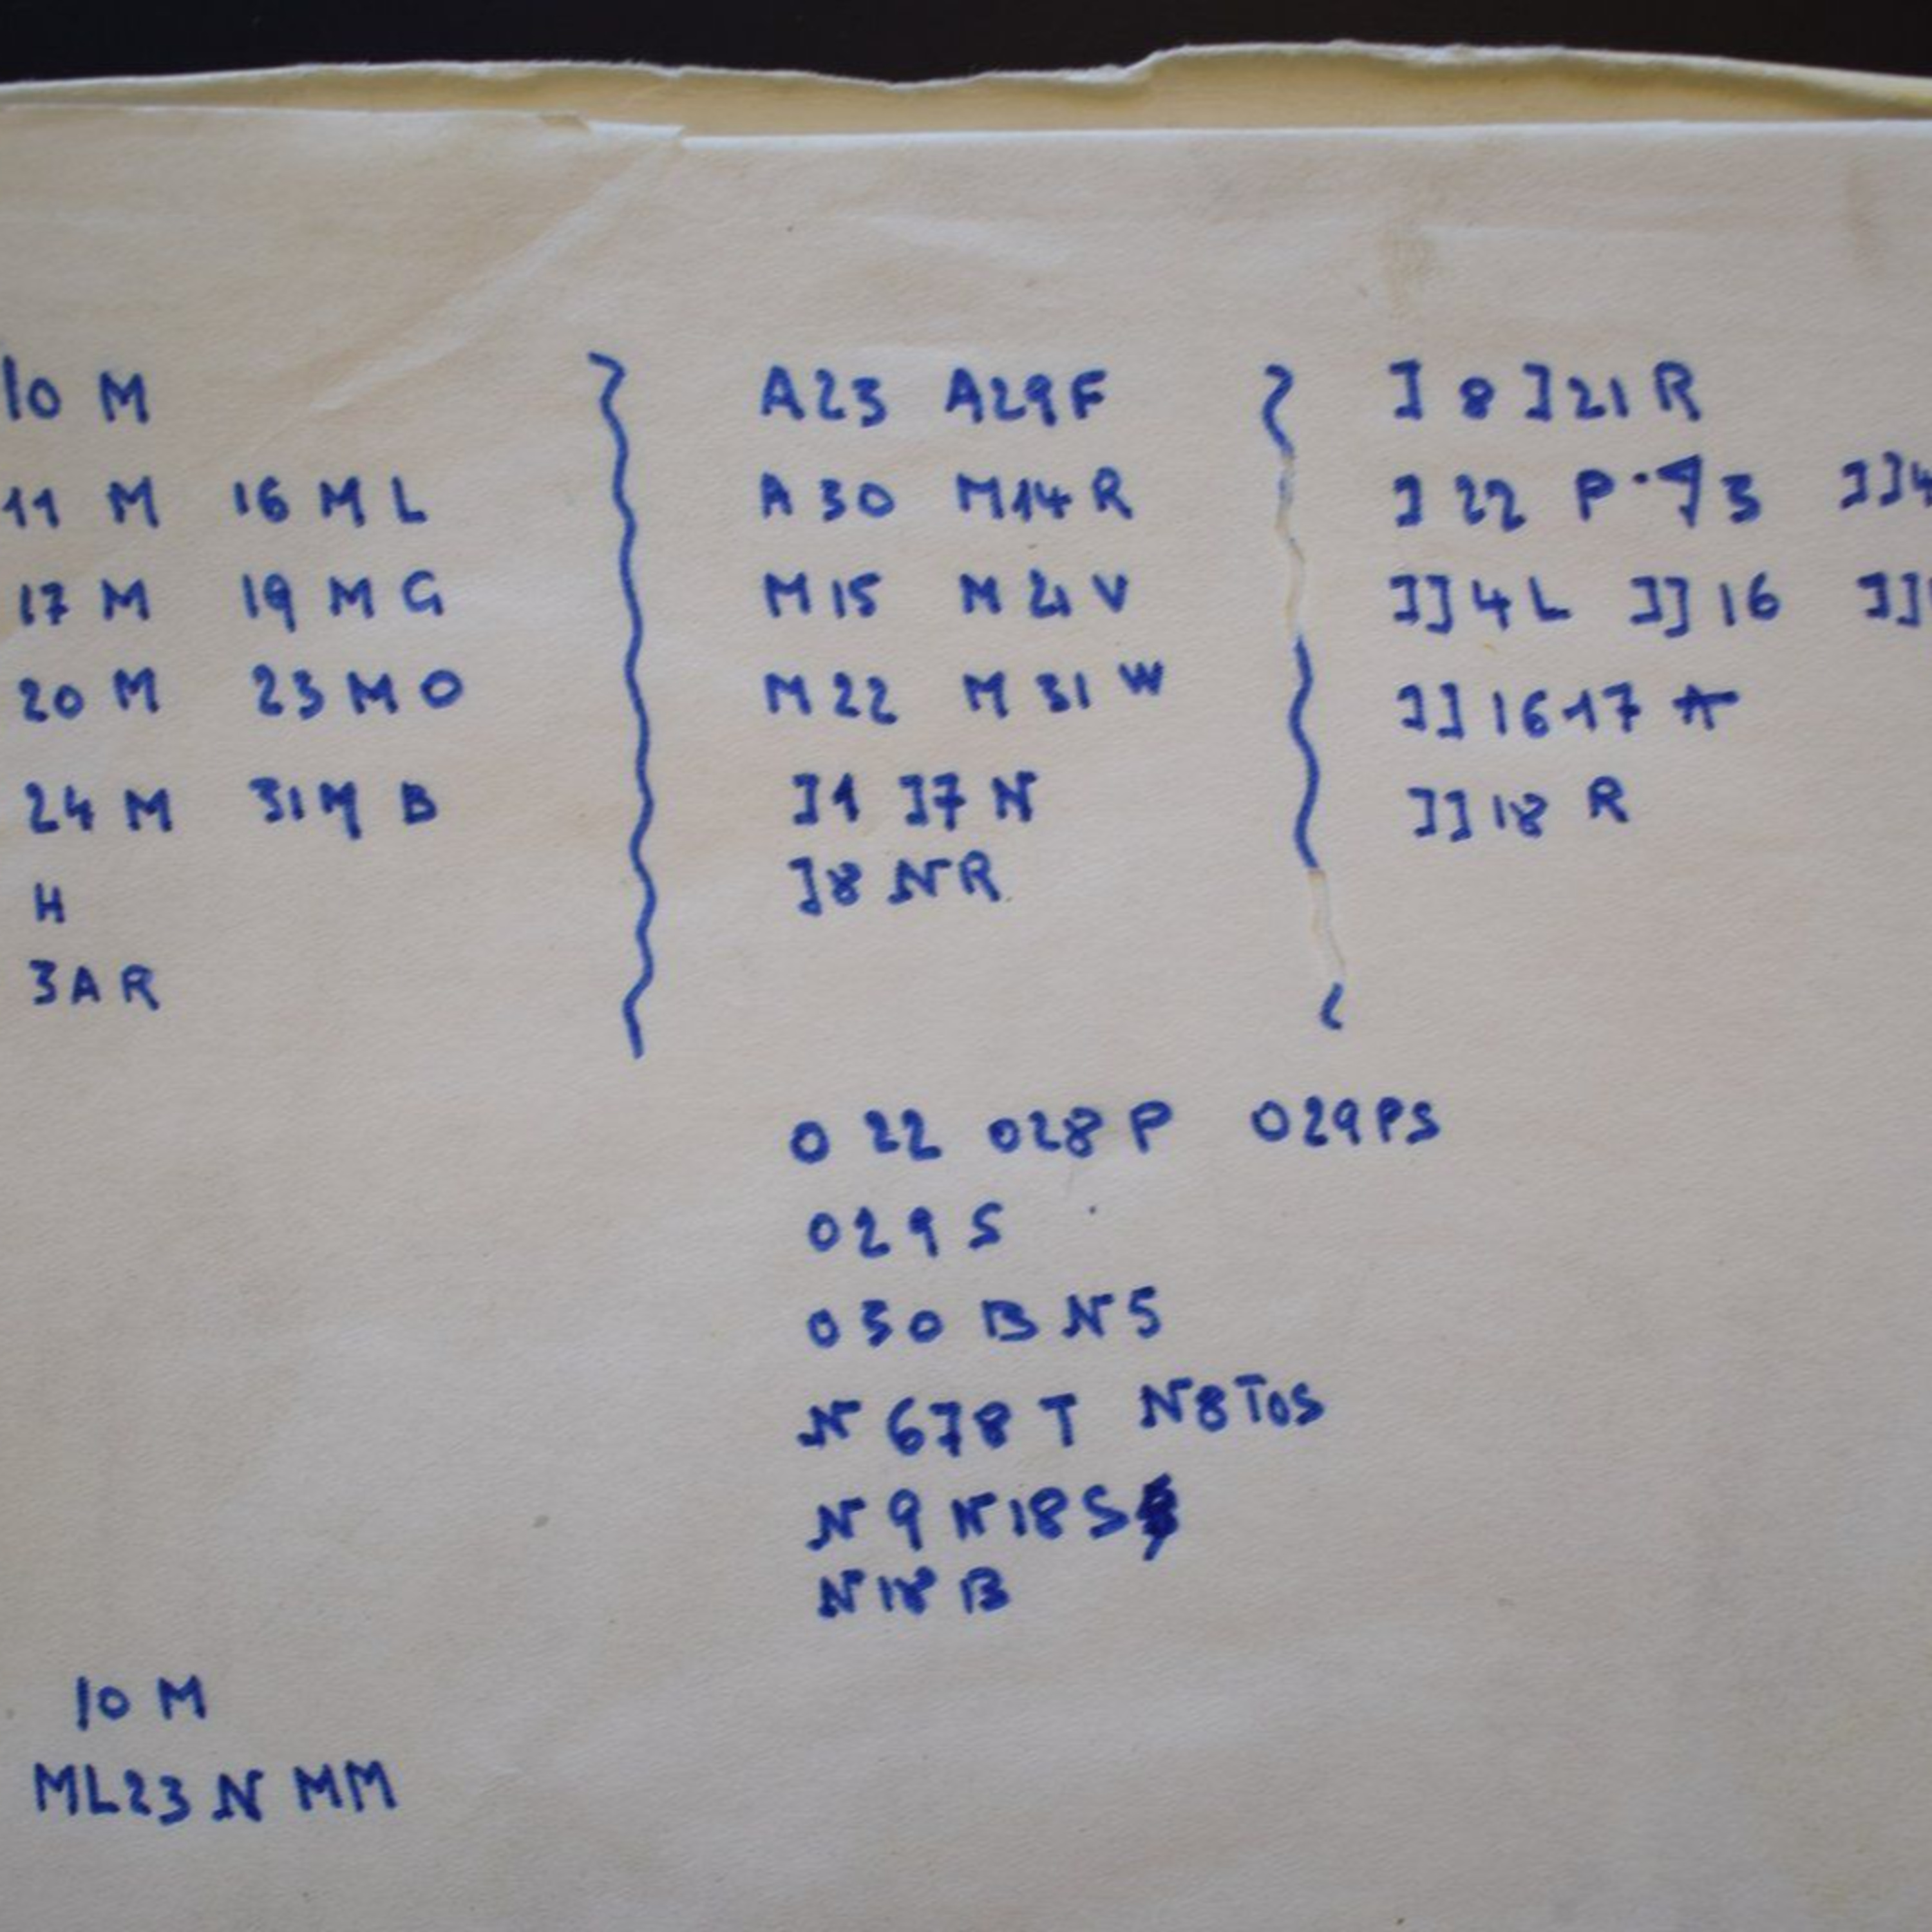 10 M
11 M 16 M L
17 M 19 M G
20 M 23 M O
24 M 31 M B
H
3 A R
A23 A29F
A 30 M14 R
M 15 M 21 V
M 22 M 31 W
J1 J7 N
J8 NR
J 8 J21 R
J 22 P. J3 JJ4
JJ4 L JJ 16 JJ
JJ 16 17 A
JJ 18 R
O 22 O28 P O29PS
O29 S
O30 B N5
N 678 T N8 Tos
N 9 N18 S
N18 B
10 M
ML23 N MM